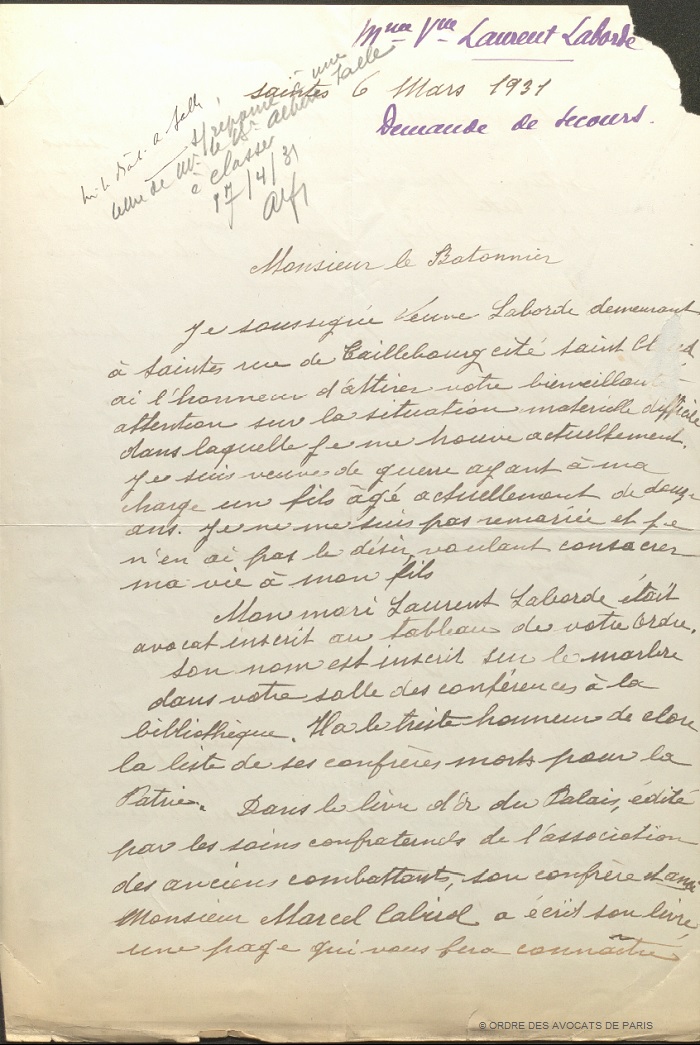 Mme Vve Laurent Laborde
Saintes 6 Mars 1931
Demande de secours.
répome à une
lettre de Mr le Ber Albert Salle
à classer
17/4/31
Monsieur le Batonnier
Je soussigné Veuve Laborde demeurant
à Saintes rue de Taillebourg cité Saint
ai l'honneur d'attirer votre bienveillante
attention sur la situation matérielle difficile
dans laquelle je me trouve actuellement.
Je suis veuve de guerre ayant à ma
charge un fils âgé actuellement de douze
ans. Je ne me suis pas remariée et je
n'en ai pas le désir, voulant consacrer
ma vie à mon fils
Mon mari Laurent Laborde était
avocat inscrit au tableau de votre Ordre.
son nom est inscrit sur le marbre
dans votre salle des conférences à la
bibliothèque. Il a le triste honneur de clore
la liste de ses confrères morts pour la
Patrie. Dans le livre d'Or du Palais, édité
par les soins confraternels de l'association
des anciens combattants, son confrère et ami
Monsieur Marcel a écrit son livre,
une page qui vous fera connaître
© ORDRE DES AVOCATS DE PARIS